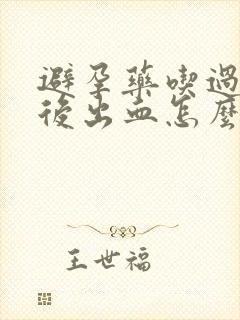 避孕藥喫過
後出血怎麼
王世福